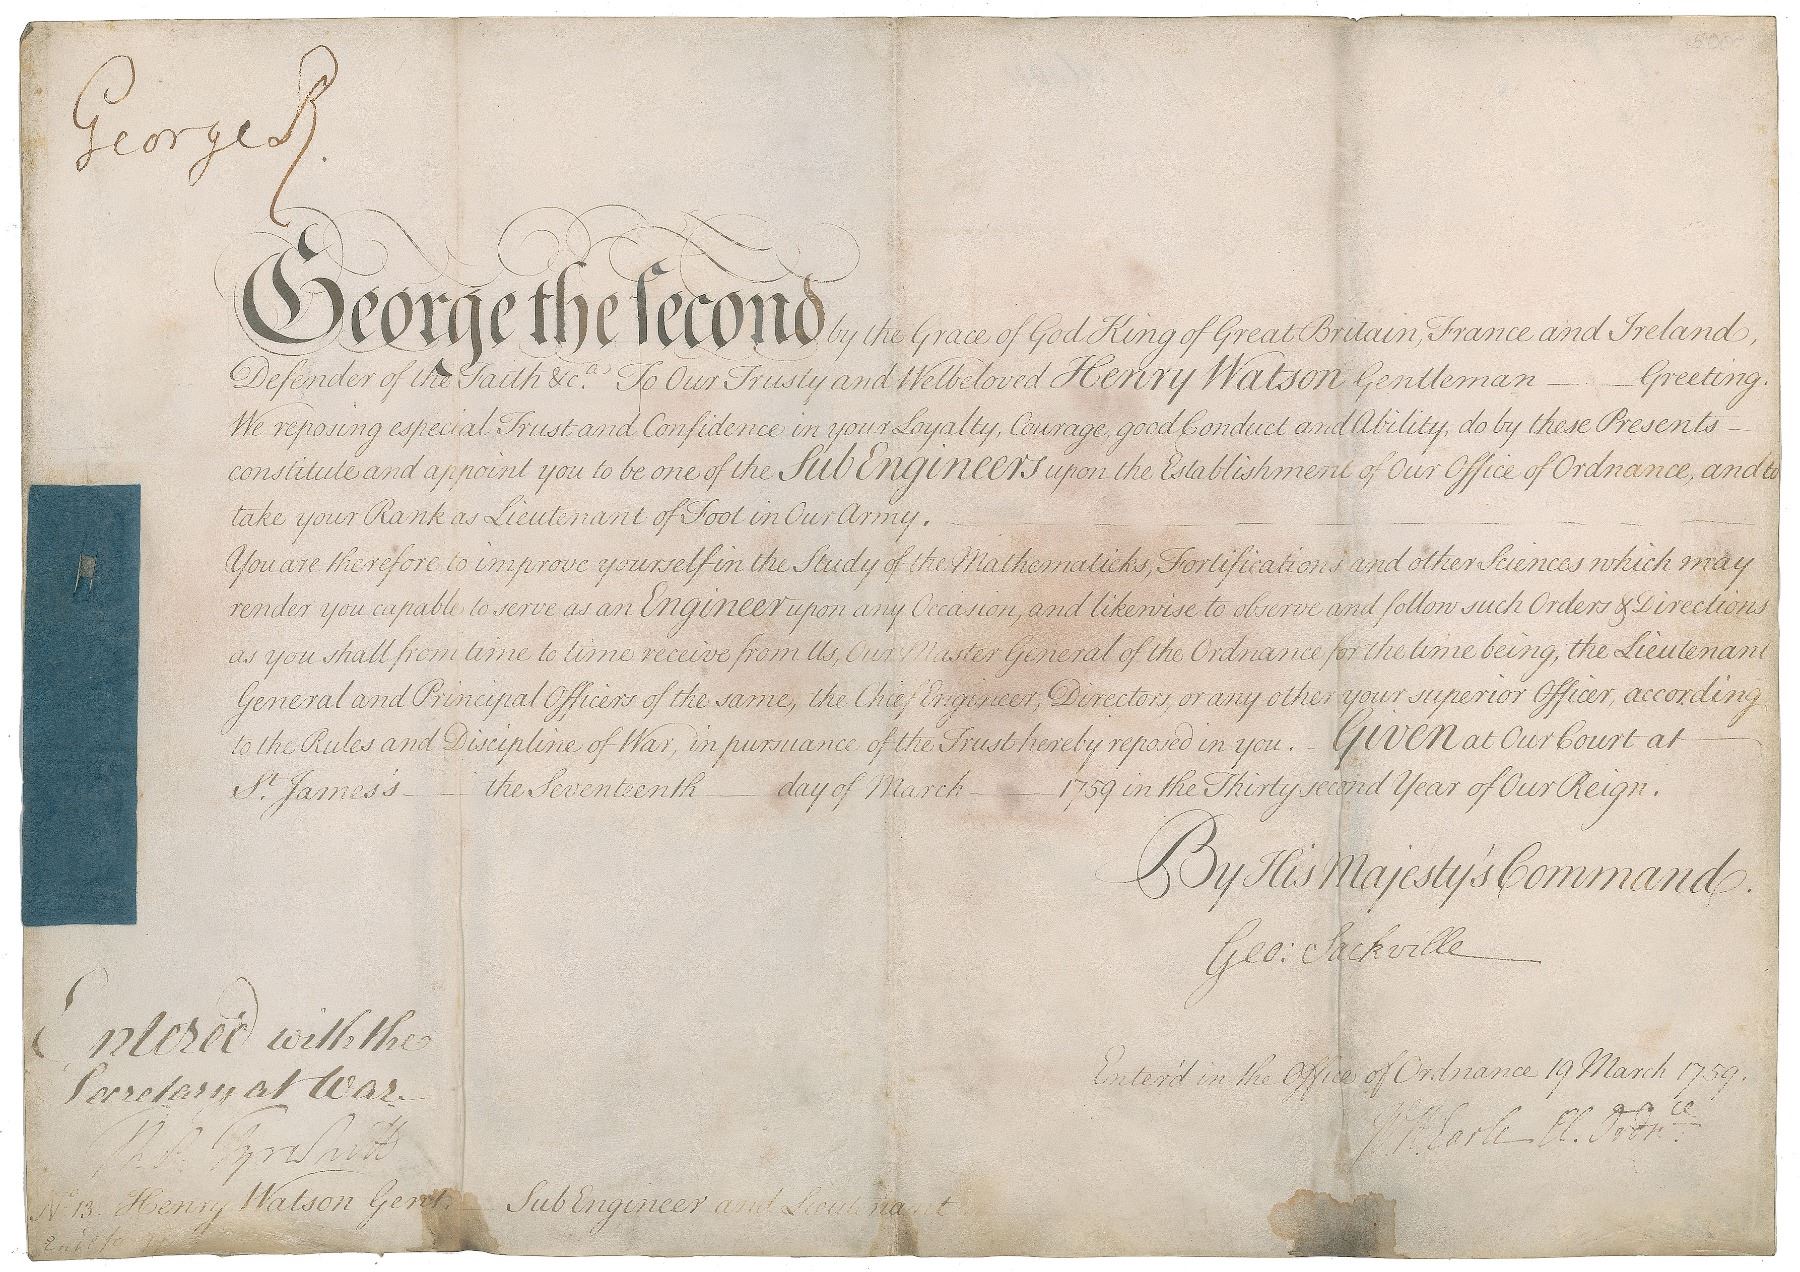 George R.
George the second by the Grace of God King of Great Britain, France and Ireland,
Defender of the Faith &c.a To Our Trusty and Welbeloved Henry Watson Gentleman — — Greeting.
We reposing especial Trust and Confidence in your Loyalty, Courage, good Conduct and Ability, do by these Presents —
constitute and appoint you to be one of the Sub Engineers upon the Establishment of Our Office of Ordnance, and to
take your Rank as Lieutenant of Foot in Our Army.
You are therefore to improve yourself in the Study of the Mathematicks, Fortifications and other Sciences which may
render you capable to serve as an Engineer upon any Occasion, and likewise to observe and follow such Orders & Directions
as you shall from time to time receive from Us, Our Master General of the Ordnance for the time being, the Lieutenant
General and Principal Officers of the same, the Chief Engineer, Directors, or any other your superior Officer, according
to the Rules and Discipline of War, in pursuance of the Trust hereby reposed in you. — Given at Our Court at —
St. James's — the Seventeenth — day of March — 1759 in the Thirty second Year of Our Reign.
By His Majesty's Command.
Geo: Sackville
Entered with the
Secretary at War.
Tyrwhitt
Enter'd in the Office of Ordnance 19 March 1759.
Earle Cl.
No. 13. Henry Watson Gent. — Sub Engineer and Lieutenant